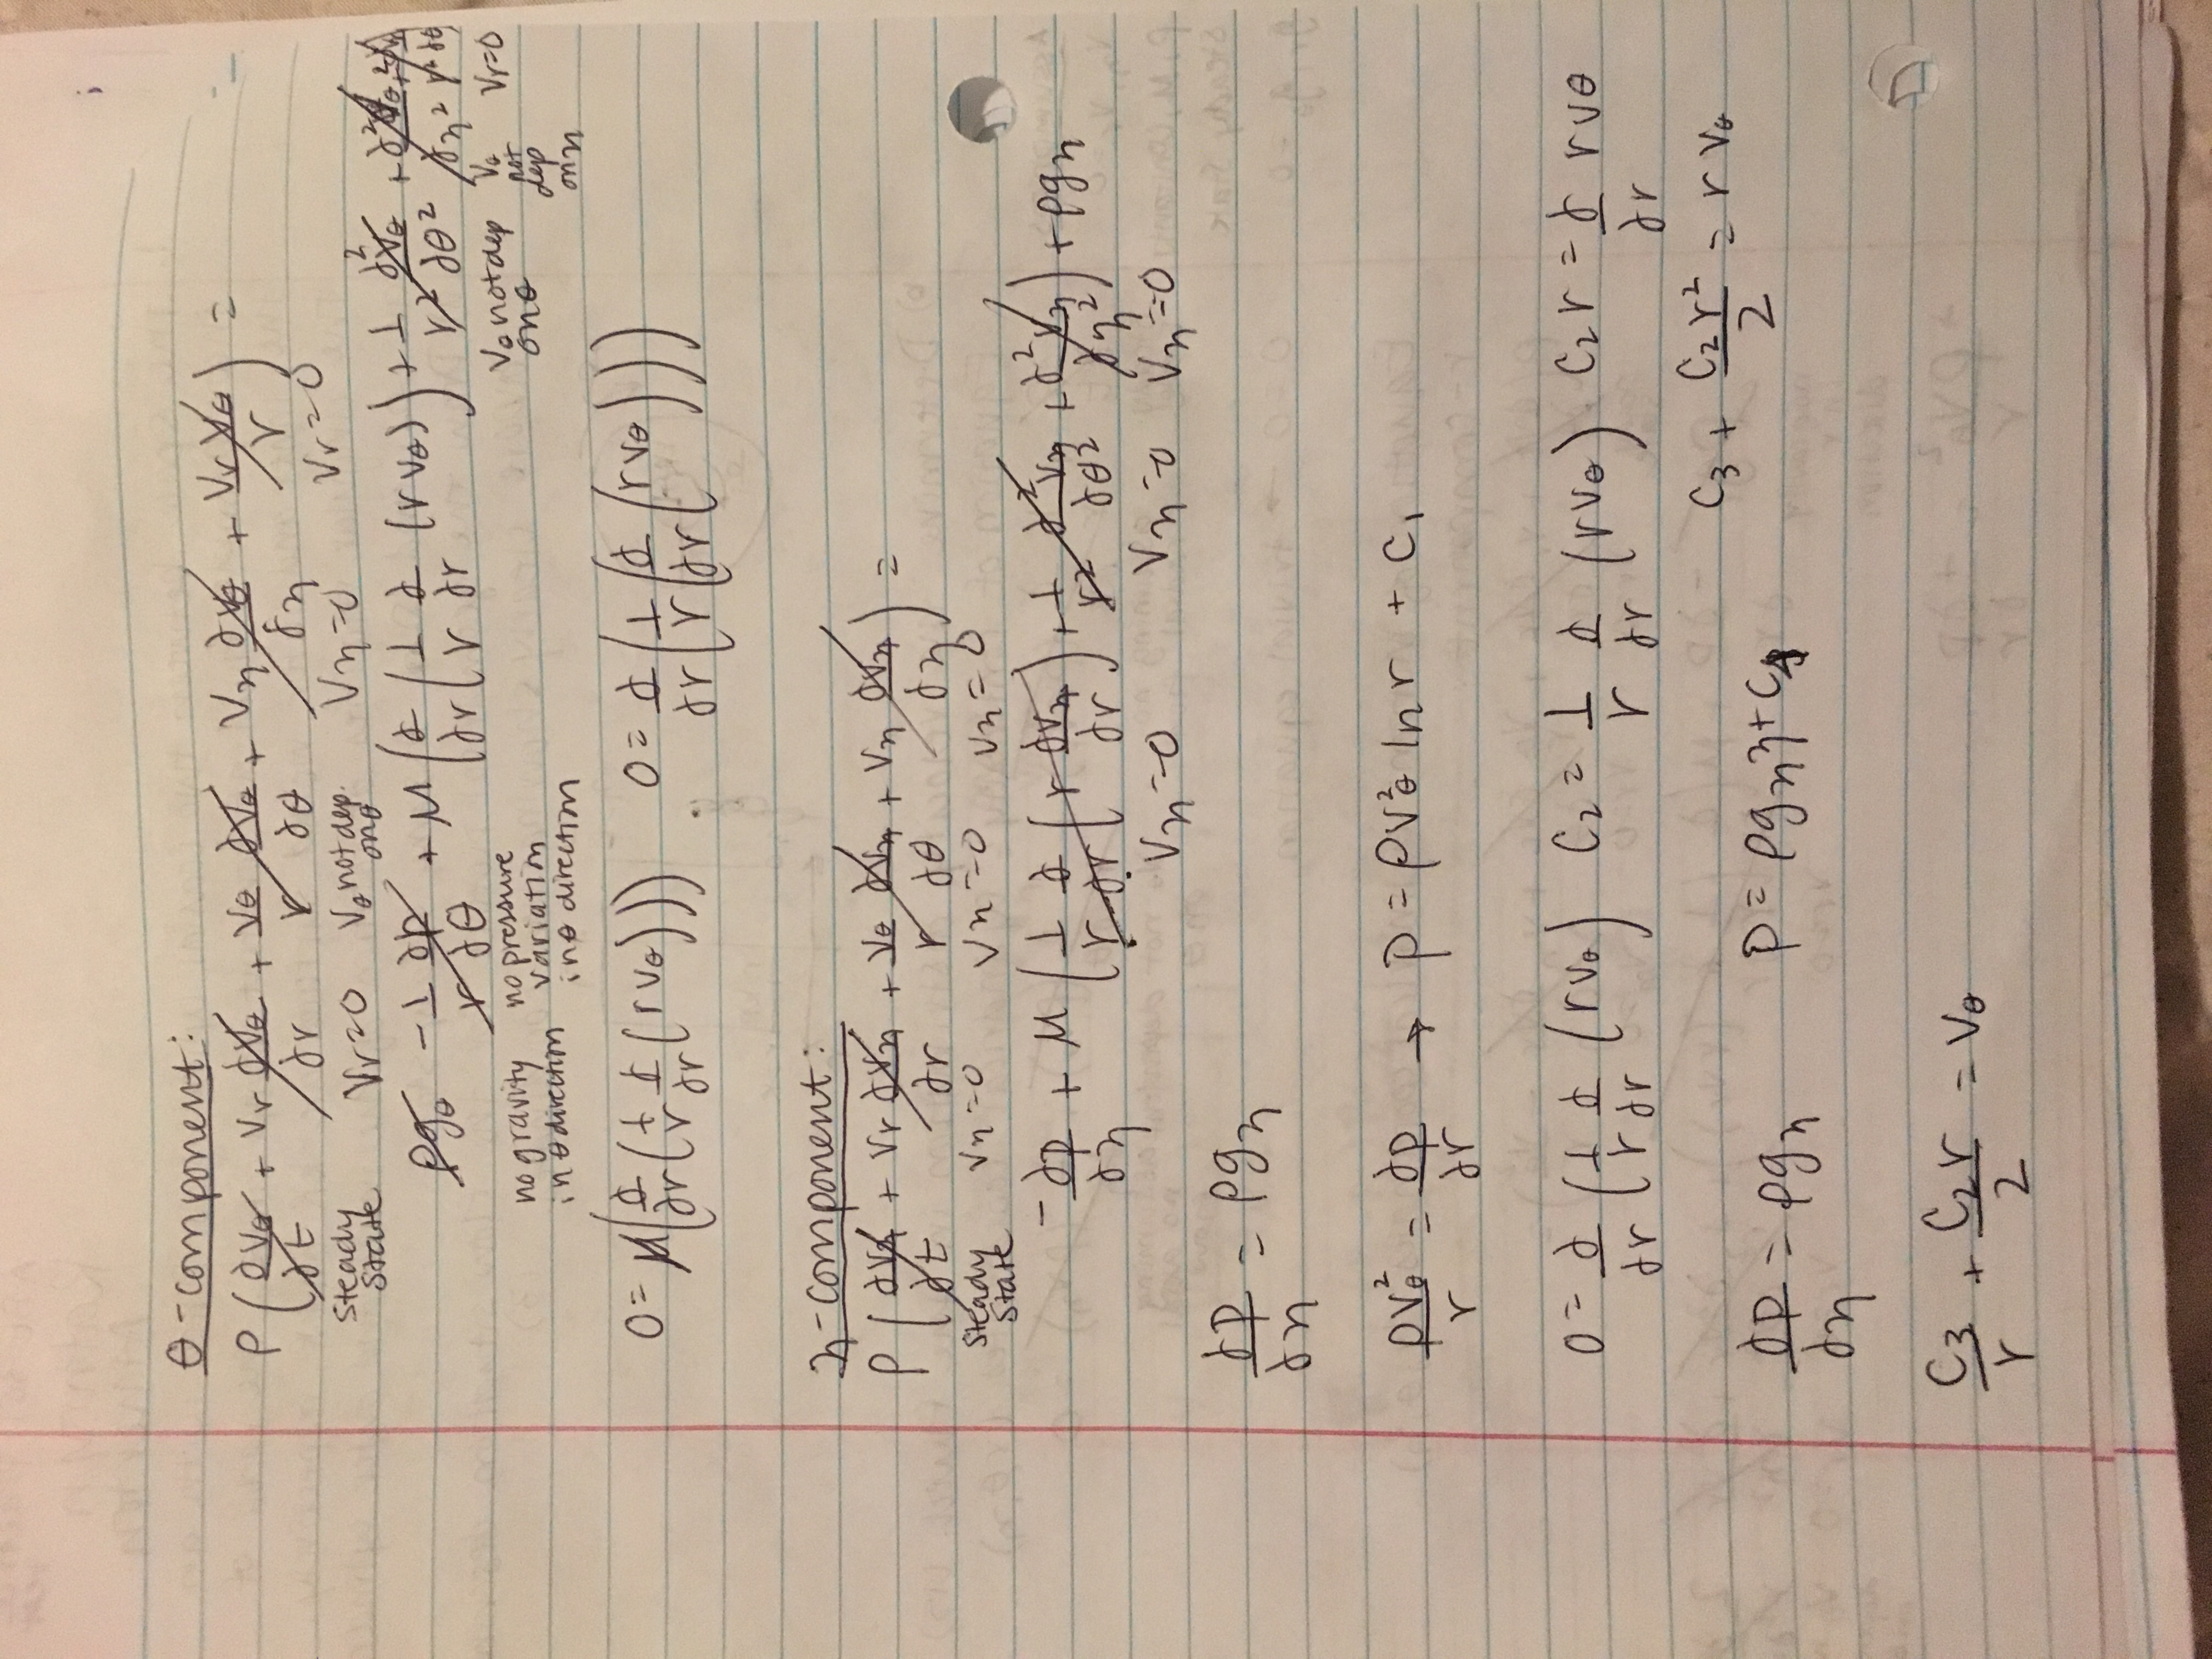 θ-component:
ρ(∂vθ/∂t + vr ∂vθ/∂r + vθ/r ∂vθ/∂θ + vz ∂vθ/∂z + vr vθ/r) =
steady state vr=0 vθ not dep. on θ vz=0 vr=0
ρgθ - 1/r ∂p/∂θ + μ(∂/∂r(1/r ∂/∂r (r vθ)) + 1/r² ∂²vθ/∂θ² + ∂²vθ/∂z² + 2/r² ∂vr/∂θ)
no gravity in θ direction no pressure variation in θ direction vθ not dep on θ vθ not dep on z vr=0
0 = μ(∂/∂r(1/r ∂/∂r(r vθ))) 0 = ∂/∂r(1/r(∂/∂r(r vθ)))
z-component:
ρ(∂vz/∂t + vr ∂vz/∂r + vθ/r ∂vz/∂θ + vz ∂vz/∂z) =
steady state vz=0 vz=0 vz=0
-∂p/∂z + μ(1/r ∂/∂r(r ∂vz/∂r) + 1/r² ∂²vz/∂θ² + ∂²vz/∂z²) + ρgz
vz=0 vz=0 vz=0
∂p/∂z = ρgz
ρvθ²/r = ∂p/∂r → p = ρvθ² ln r + c₁
0 = ∂/∂r(1/r ∂/∂r (r vθ) c₂ = 1/r ∂/∂r (r vθ) c₂r = ∂/∂r r vθ
c₃ + c₂r²/2 = r vθ
∂p/∂z = ρgz p = ρgz z + c₄
c₃/r + c₂r/2 = vθ